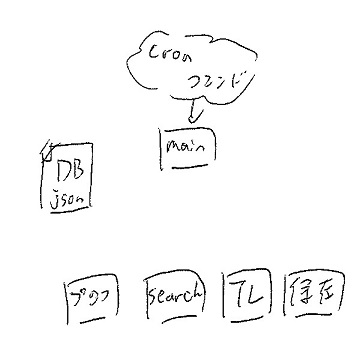 cron
コマンド
main
DB
json
プロフ
search
TL
存在